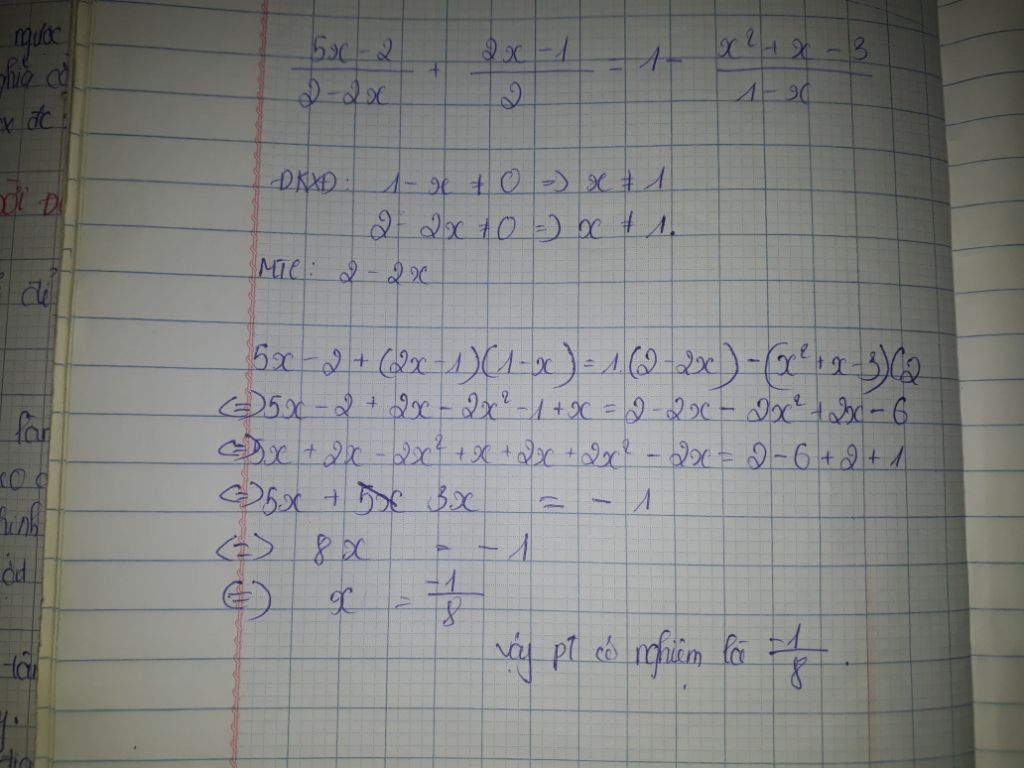 ngược
5x - 2 / 2 - 2x + 2x - 1 / 2 = 1 - x² + x - 3 / 1 - x
ĐKXĐ: 1 - x ≠ 0 => x ≠ 1
2 - 2x ≠ 0 => x ≠ 1.
MTC: 2 - 2x
5x - 2 + (2x - 1)(1 - x) = 1.(2 - 2x) - (x² + x - 3)(2
<=> 5x - 2 + 2x - 2x² - 1 + x = 2 - 2x - 2x² + 2x - 6
<=> 5x + 2x - 2x² + x + 2x + 2x² - 2x = 2 - 6 + 2 + 1
<=> 5x + 5x 3x = - 1
<=> 8x = - 1
<=> x = -1 / 8
vậy pt có nghiệm là -1 / 8 .